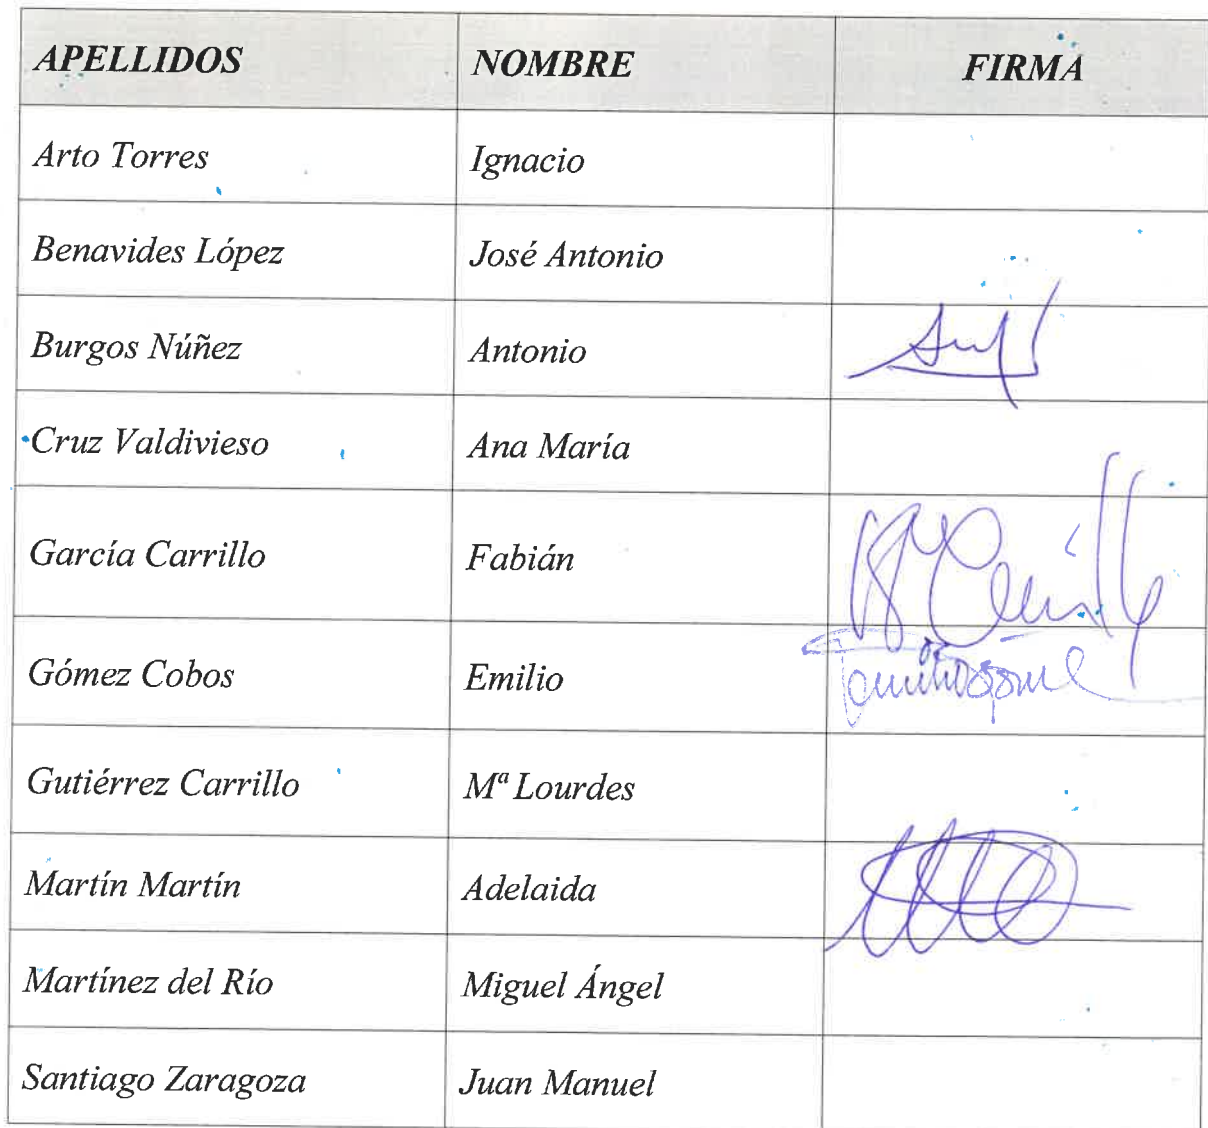 APELLIDOS NOMBRE FIRMA
Arto Torres Ignacio
Benavides López José Antonio
Burgos Núñez Antonio
Cruz Valdivieso Ana María
García Carrillo Fabián
Gómez Cobos Emilio
Gutiérrez Carrillo Mª Lourdes
Martín Martín Adelaida
Martínez del Río Miguel Ángel
Santiago Zaragoza Juan Manuel